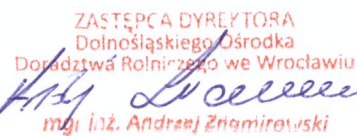 ZASTĘPCA DYREKTORA
Dolnośląskiego Ośrodka
Doradztwa Rolniczego we Wrocławiu
mgr inż. Andrzej Znamirowski